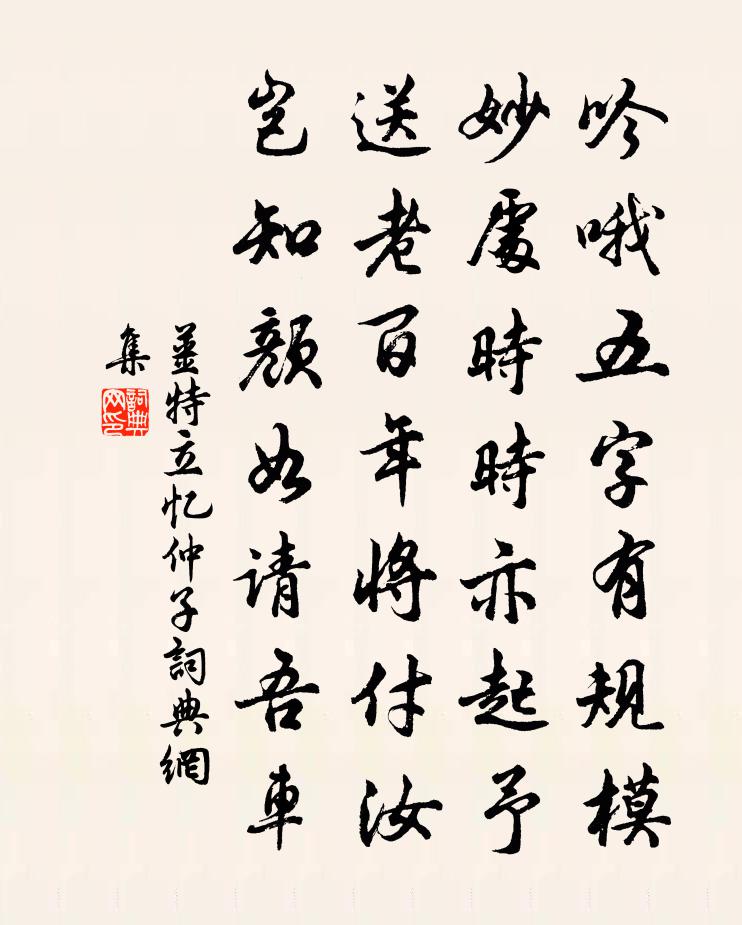 吟哦五字有规模
妙處時時亦起予
送老百年将付汝
岂知颜如请吾車
姜特立忆仲子詞典網
集
詞典
网印